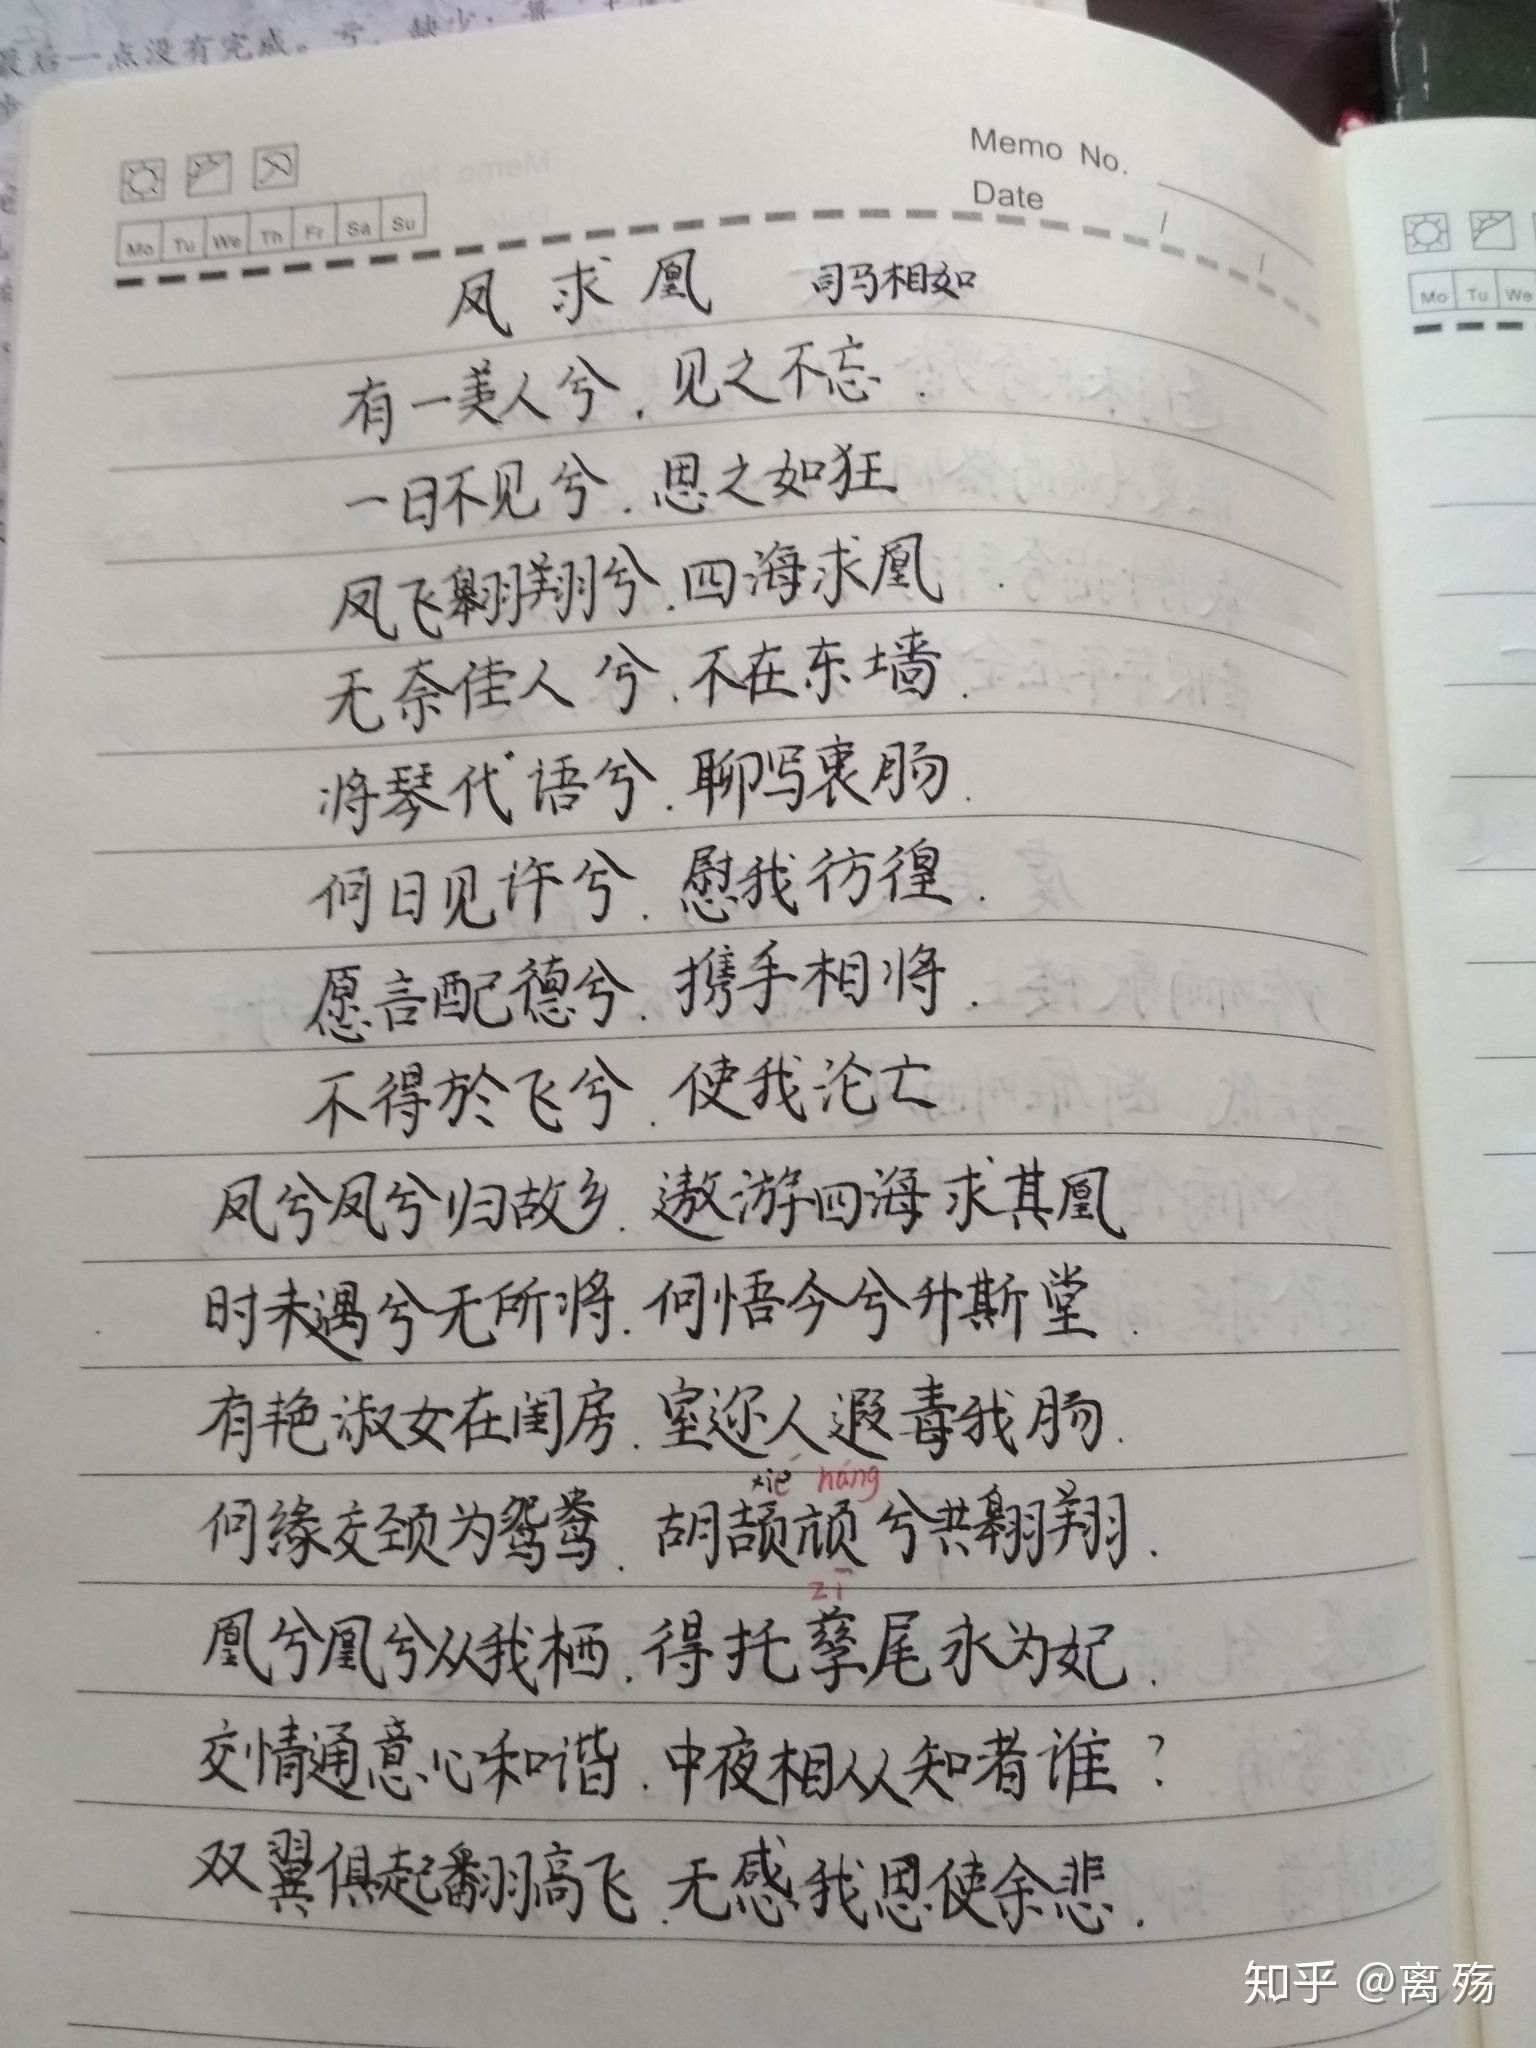 最后一点没有完成。亏,缺少;
Memo No.
Date / /
Mo Tu We Th Fr Sa Su
凤求凰 司马相如
有一美人兮.见之不忘.
一日不见兮.思之如狂
凤飞翱翔兮.四海求凰.
无奈佳人兮.不在东墙.
将琴代语兮.聊写衷肠.
何日见许兮.慰我彷徨.
愿言配德兮.携手相将.
不得於飞兮.使我沦亡
凤兮凤兮归故乡.遨游四海求其凰
时未遇兮无所将.何悟今兮升斯堂.
有艳淑女在闺房.室迩人遐毒我肠.
xié háng
何缘交颈为鸳鸯.胡颉颃兮共翱翔.
zī
凰兮凰兮从我栖.得托孳尾永为妃.
交情通意心和谐.中夜相从知者谁?
双翼俱起翻高飞.无感我思使余悲.
Mo Tu We
知乎 @离殇